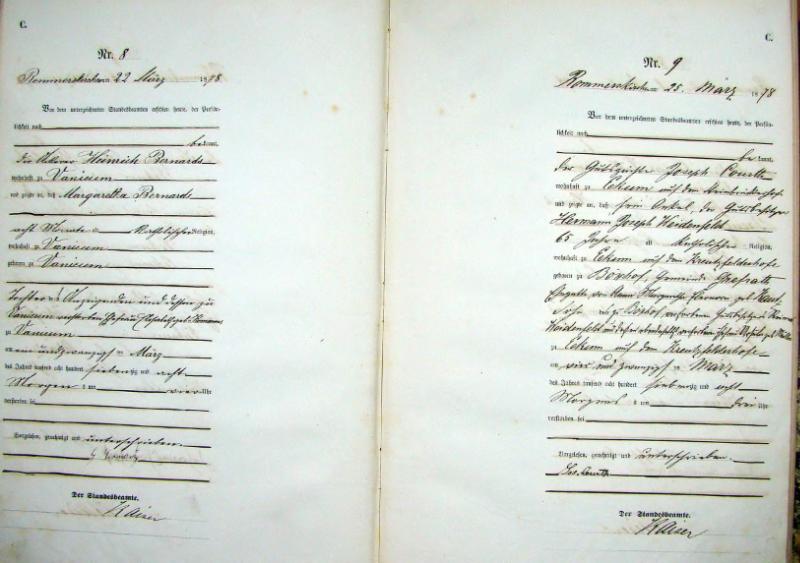 C.
Nr. 8
Rommerskirchen 22 März 1878
Vor dem unterzeichneten Standesbeamten erschien heute, der Persön-
lichkeit nach
bekannt,
der Ackerer Heinrich Bernards
wohnhaft zu Vanikum
und zeigte an, daß Margaretha Bernards
acht Monate Katholischer Religion,
wohnhaft zu Vanikum
geboren zu Vanikum
Tochter des Anzeigenden und dessen zu
Vanikum verstorbenen Ehefrau
zu Vanikum
am ein und zwanzigsten März
des Jahres tausend acht hundert siebenzig und acht
Morgens um vier Uhr
verstorben sei
Vorgelesen, genehmigt und unterschrieben.
Der Standesbeamte.
Kaiser
C.
Nr. 9
Rommerskirchen 25. März 1878
Vor dem unterzeichneten Standesbeamten erschien heute, der Persön-
lichkeit nach
bekannt,
der Joseph
wohnhaft zu Eckum auf dem
und zeigte an, daß sein Onkel, der Gutsbesitzer
Hermann Joseph Weidenfeld
65 Jahre alt Katholischer Religion,
wohnhaft zu Eckum auf dem Kreutzfelderhofe
geboren zu Böxhof, Gemeinde Grefrath
Ehegatte von Anna Margaretha geb.
Sohn des zu Böxhof, verstorbenen
Weidenfeld und dessen ebendaselbst verstorbenen Ehefrau
zu Eckum auf dem Kreutzfelderhofe
am vier und zwanzigsten März
des Jahres tausend acht hundert siebenzig und acht
Morgens um drei Uhr
verstorben sei
Vorgelesen, genehmigt und unterschrieben.
Der Standesbeamte.
Kaiser